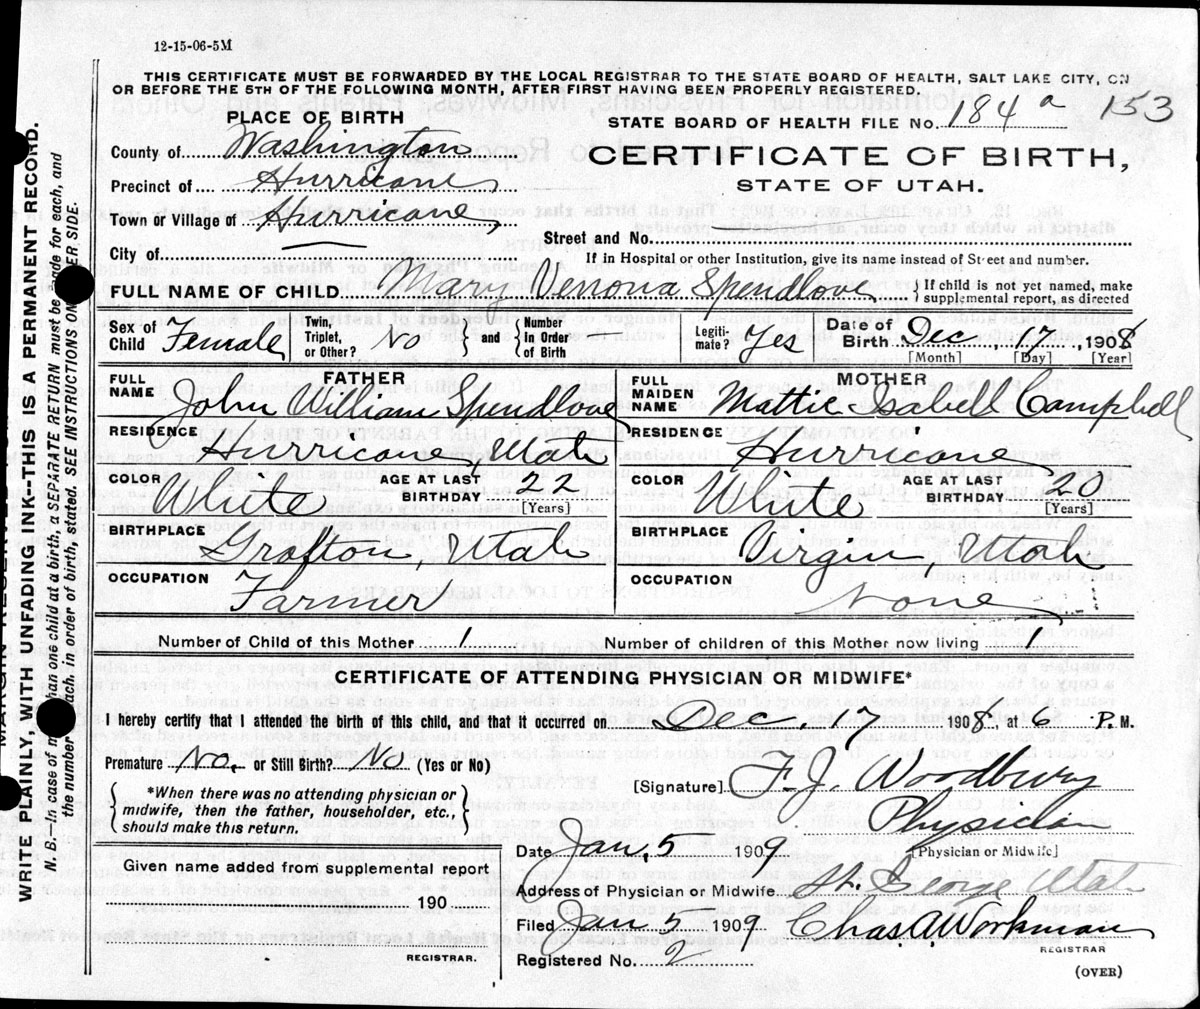 12-15-06-5M
THIS CERTIFICATE MUST BE FORWARDED BY THE LOCAL REGISTRAR TO THE STATE BOARD OF HEALTH, SALT LAKE CITY, ON
OR BEFORE THE 5TH OF THE FOLLOWING MONTH, AFTER FIRST HAVING BEEN PROPERLY REGISTERED.
PLACE OF BIRTH
STATE BOARD OF HEALTH FILE No. 184 a 153
County of Washington
CERTIFICATE OF BIRTH,
Precinct of Hurricane
STATE OF UTAH.
Town or Village of Hurricane,
Street and No.
City of
If in Hospital or other Institution, give its name instead of Street and number.
FULL NAME OF CHILD Mary Verrona Spendlove } If child is not yet named, make supplemental report, as directed
Sex of Child Female { Twin, Triplet, or Other? No } and { Number In Order of Birth Legiti-mate? Yes Date of Birth Dec 17, 1908
[Month] [Day] [Year]
FATHER
MOTHER
FULL NAME John William Spendlove
FULL MAIDEN NAME Mattie Isabell Campbell
RESIDENCE Hurricane, Utah,
RESIDENCE Hurricane
COLOR White AGE AT LAST BIRTHDAY 22 [Years]
COLOR White AGE AT LAST BIRTHDAY 20 [Years]
BIRTHPLACE Grafton, Utah
BIRTHPLACE Virgin, Utah
OCCUPATION Farmer
OCCUPATION None
Number of Child of this Mother 1
Number of children of this Mother now living
CERTIFICATE OF ATTENDING PHYSICIAN OR MIDWIFE*
I hereby certify that I attended the birth of this child, and that it occurred on Dec. 17 1908 at 6 P. M.
Premature No. or Still Birth? No (Yes or No)
[Signature] F. J. Woodbury
*When there was no attending physician or
midwife, then the father, householder, etc.,
should make this return.
Physician
[Physician or Midwife]
Date Jan, 5 1909
Given name added from supplemental report
Address of Physician or Midwife St. George Utah
190
Filed Jan 5 1909 Chas. A. Workman
REGISTRAR
REGISTRAR.
Registered No. 2
(OVER)
WRITE PLAINLY, WITH UNFADING INK--THIS IS A PERMANENT RECORD.
N. B.--In case of more than one child at a birth, a SEPARATE RETURN must be made for each, and
the number of each, in order of birth, stated. SEE INSTRUCTIONS ON OTHER SIDE.